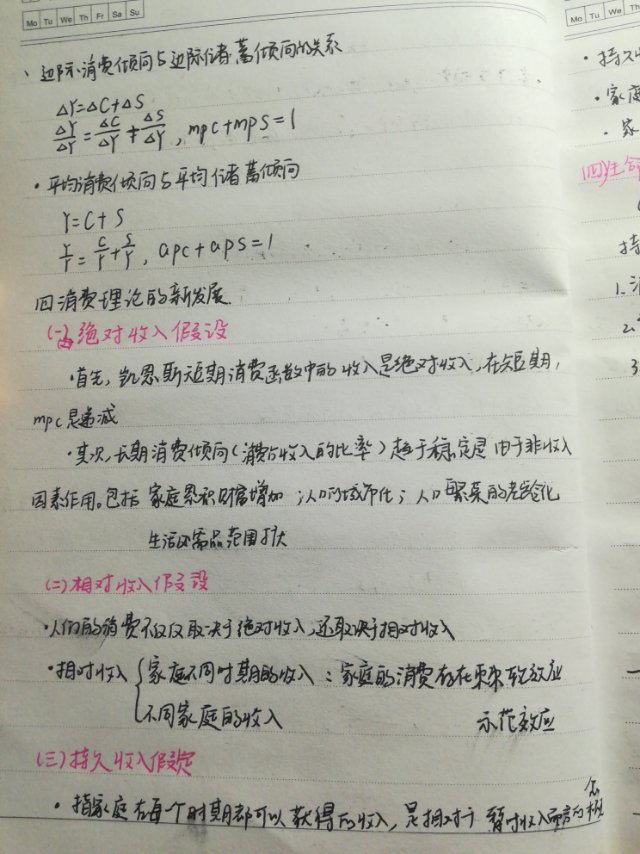 Mo Tu We Th Fr Sa Su
Mo Tu We Th
、边际消费倾向与边际储蓄倾向的关系
ΔY=ΔC+ΔS
ΔY/ΔY = ΔC/ΔY + ΔS/ΔY , mpc+mps=1
·平均消费倾向与平均储蓄倾向
Y=C+S
Y/Y = C/Y + S/Y , apc+aps=1
四 消费理论的新发展
(一)绝对收入假设
·首先,凯恩斯短期消费函数中的收入是绝对收入,在短期,
mpc是递减
·其次,长期消费倾向(消费与收入的比率)趋于稳定是由于非收入
因素作用。包括 家庭累积财富增加;人口的城市化;人口 的老龄化
生活必需品范围扩大
(二)相对收入假设
·人们的消费不仅仅取决于绝对收入,还取决于相对收入
·相对收入{家庭不同时期的收入:家庭的消费存在棘轮效应
不同家庭的收入 示范效应
(三)持久收入假定
·指家庭在每个时期都可以获得的收入,是相对于 暂时收入而言的概念
·持久收
·家庭
·家
(四)生命
持
1.消
2.
3.